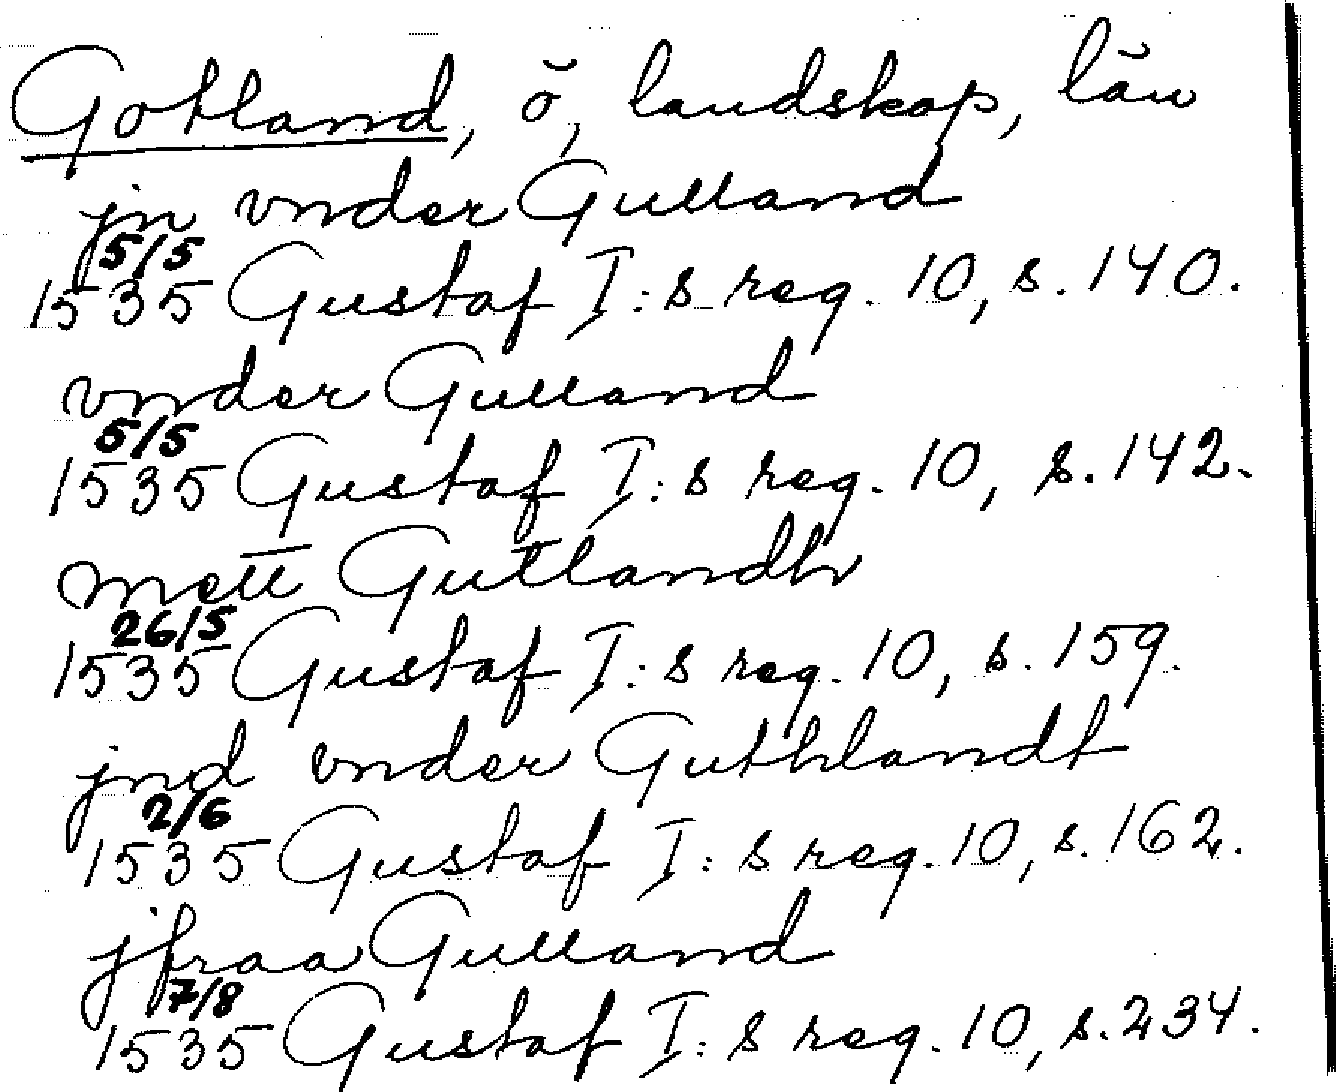 Gotland, ö, landskap, län
jn vnder Gulland
5/5
1535 Gustaf I:s reg. 10, s. 140.
vnder Gulland
5/5
1535 Gustaf I:s reg. 10, s. 142.
mett Gutlandh
26/5
1535 Gustaf I:s reg. 10, s. 159.
jnd vnder Guthlandt
2/6
1535 Gustaf I:s reg. 10, s. 162.
jfraa Gulland
7/8
1535 Gustaf I:s reg. 10, s. 234.